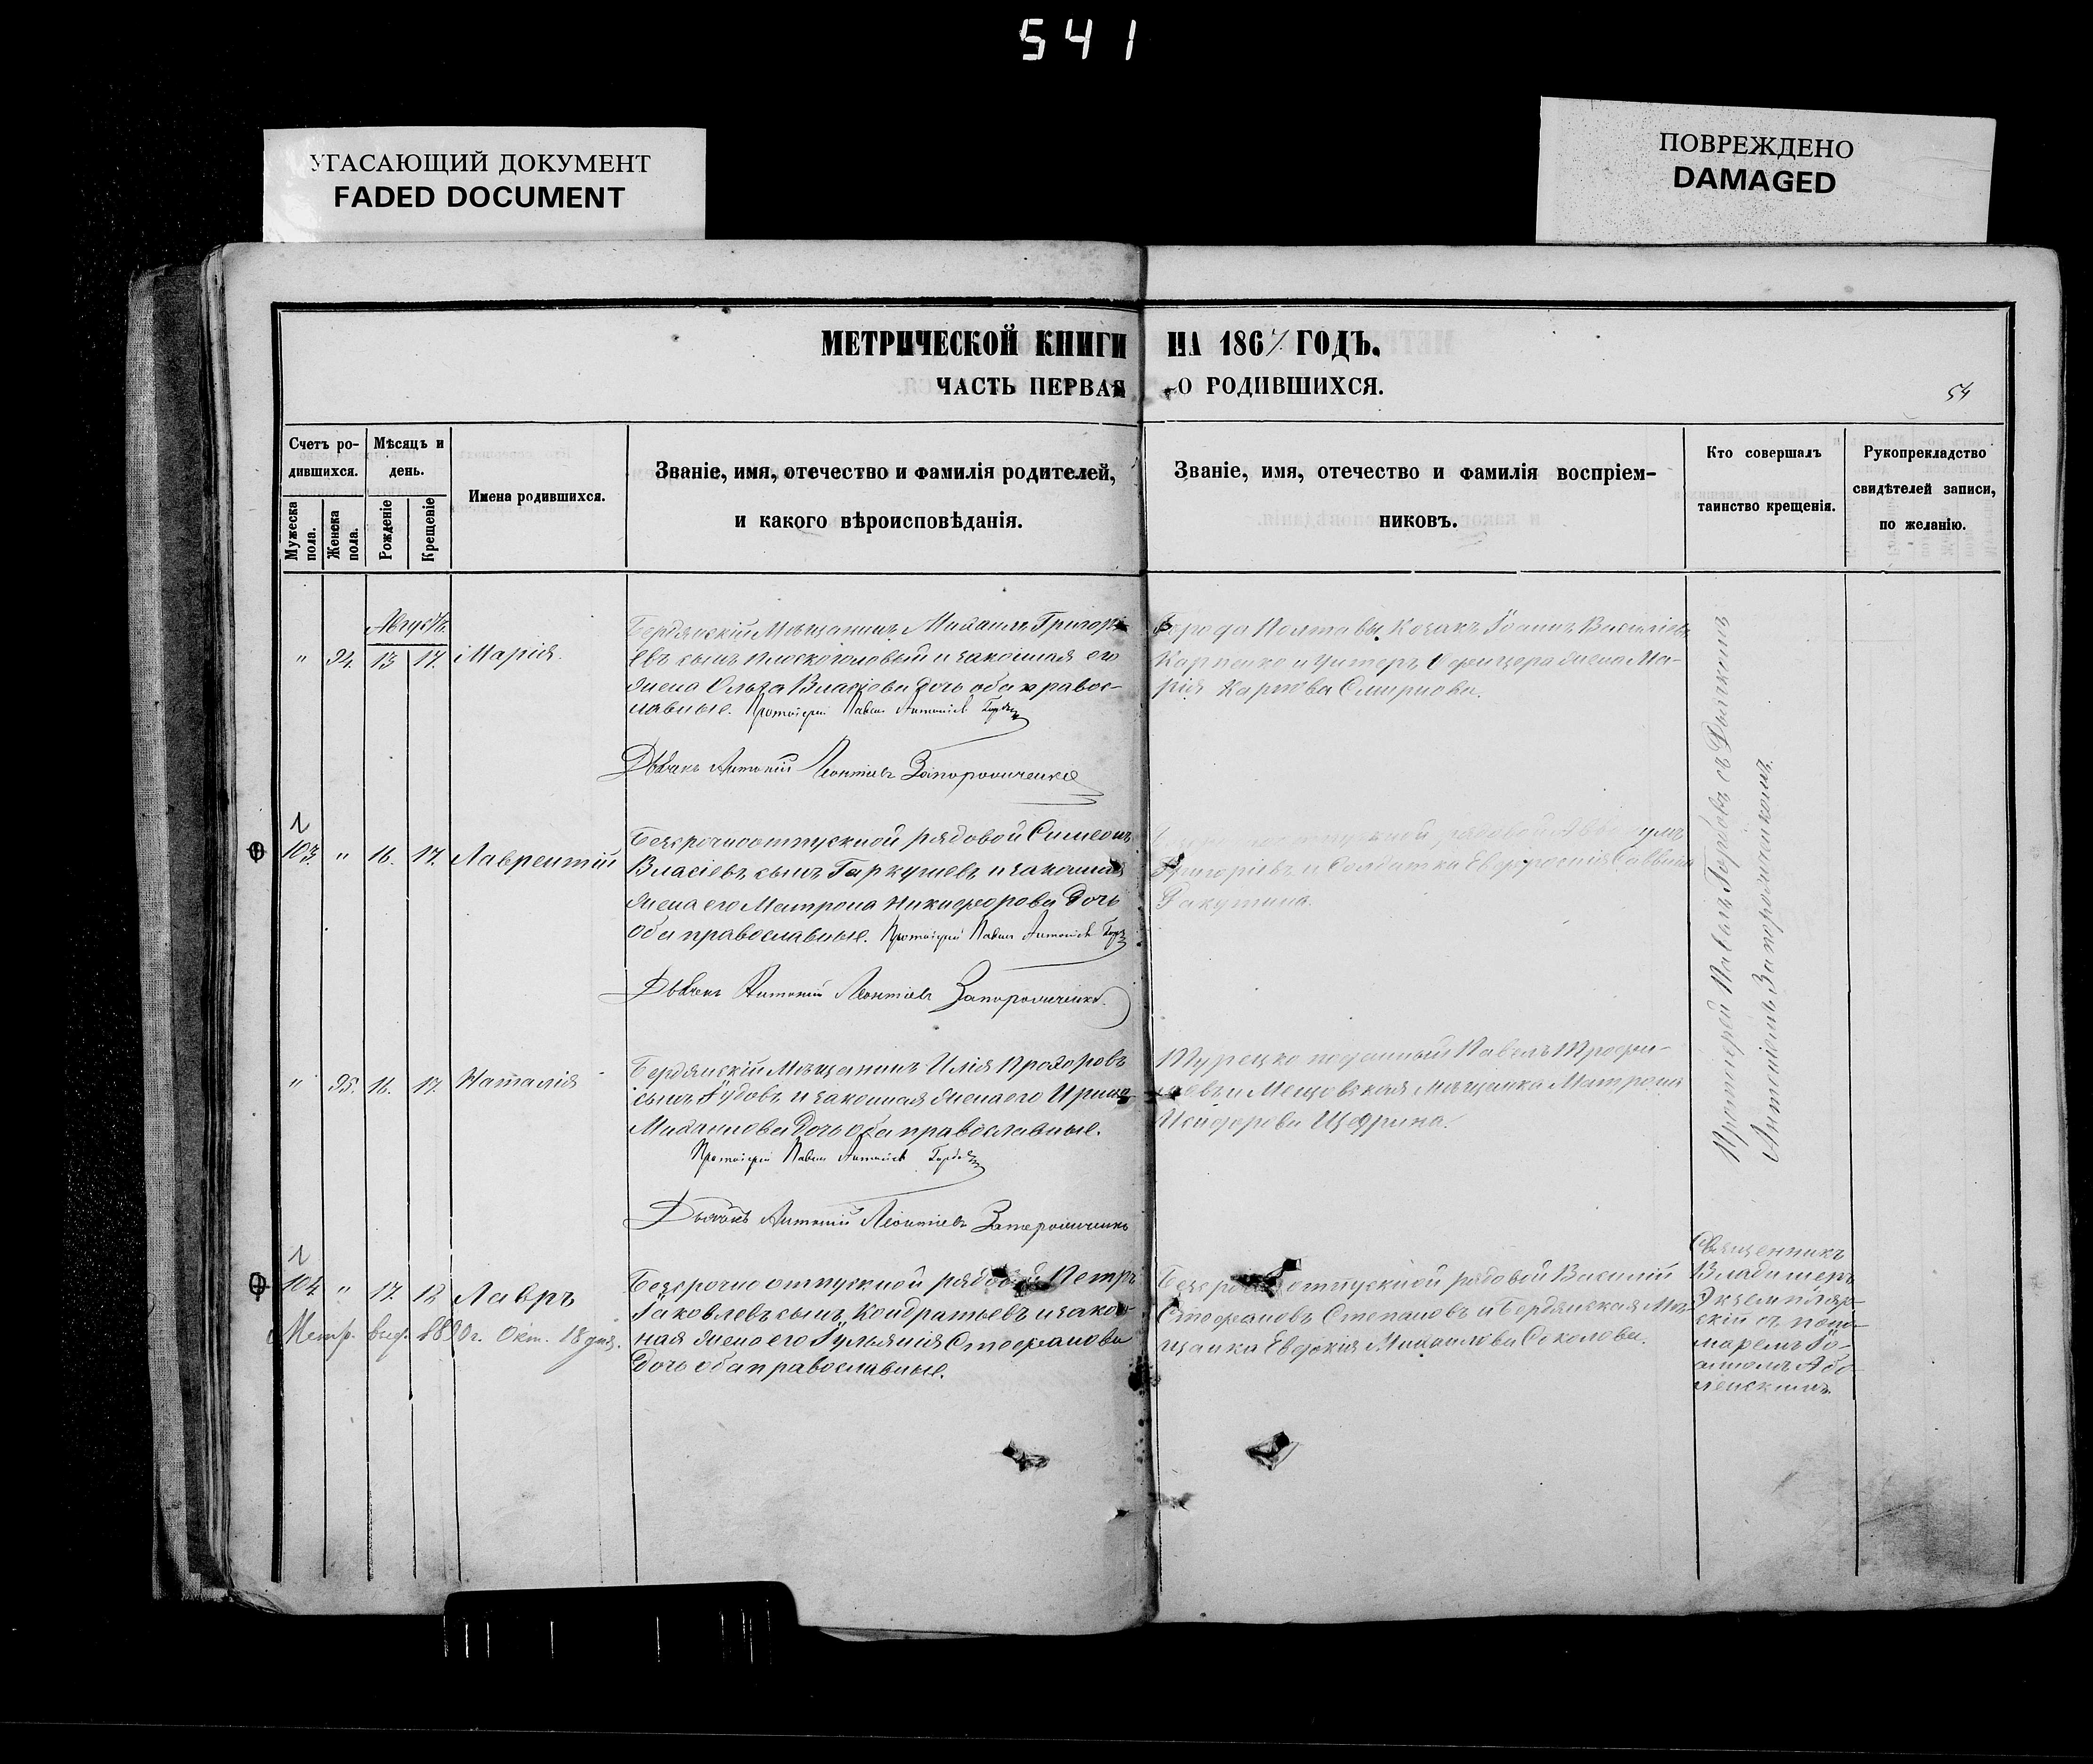 541
УГАСАЮЩИЙ ДОКУМЕНТ
FADED DOCUMENT
ПОВРЕЖДЕНО
DAMAGED
МЕТРИЧЕСКОЙ КНИГИ НА 1867 ГОДЪ.
ЧАСТЬ ПЕРВАЯ О РОДИВШИХСЯ.
54
Счетъ ро-
дившихся.
Мужеска пола.
Женска пола.
Мѣсяцъ и
день.
Рожденіе
Крещеніе
Имена родившихся.
Званіе, имя, отечество и фамилія родителей,
и какого вѣроисповѣданія.
Званіе, имя, отечество и фамилія воспріем-
никовъ.
Кто совершалъ
таинство крещенія.
Рукоприкладство
свидѣтелей записи,
по желанію.
Августъ.
" 94. 13 17. Марія.
Бердянскій Мѣщанинъ Михаилъ Григорі-
евъ сынъ Плоскоголовый и законная его
жена Ольга Власіева дочь оба правос-
лавные. Протоіерей Павелъ Антоніевъ
Дьячекъ Антоній Леонтіевъ Запорожченко
Города Полтавы Козакъ Іоаннъ Василіевъ
Карпенко и Унтеръ Офицера жена Ма-
рія Карпова Смирнова.
103 " 16. 17. Лаврентій
Безсрочноотпускной рядовой Симеонъ
Власіевъ сынъ Гаркушевъ и законная
жена его Матрона Никифорова дочь
оба православные. Протоіерей Павелъ Антоніевъ
Дьячекъ Антоній Леонтіевъ Запорожченко.
рядовой
Григоріевъ и Солдатка Евфросинія Саввина
" 95. 16. 17. Наталія
Бердянскій Мѣщанинъ Илія Прохоровъ
сынъ Гудовъ и законная жена его Ирина
Михаилова дочь оба православные.
Протоіерей Павелъ Антоніевъ
Дьячекъ Антоній Леонтіевъ Запорожченко
Турецко подданный Павелъ Трофи-
мовъ и Мещовская мѣщанка Матрона
Исидорова Щедрина.
Протоіерей Павелъ Горбовъ съ Дьячкомъ
Антоніемъ Запорожченкомъ.
104 " 17. 18 Лавръ
Метр. выд. 1880 г. Окт. 18 дня.
Безсрочно отпускной рядовой Петръ
Яковлевъ сынъ Кондратьевъ и закон-
ная жена его Іуліанія Стефанова
дочь оба православные.
Безсрочно отпускной рядовой Василій
Стефановъ Степановъ и Бердянская Мѣ-
щанка Евдокія Михаилова Соколова.
Священникъ
Владимеръ
Экземпляр-
скій съ поно-
маремъ Іо-
анномъ Або-
ленскимъ.